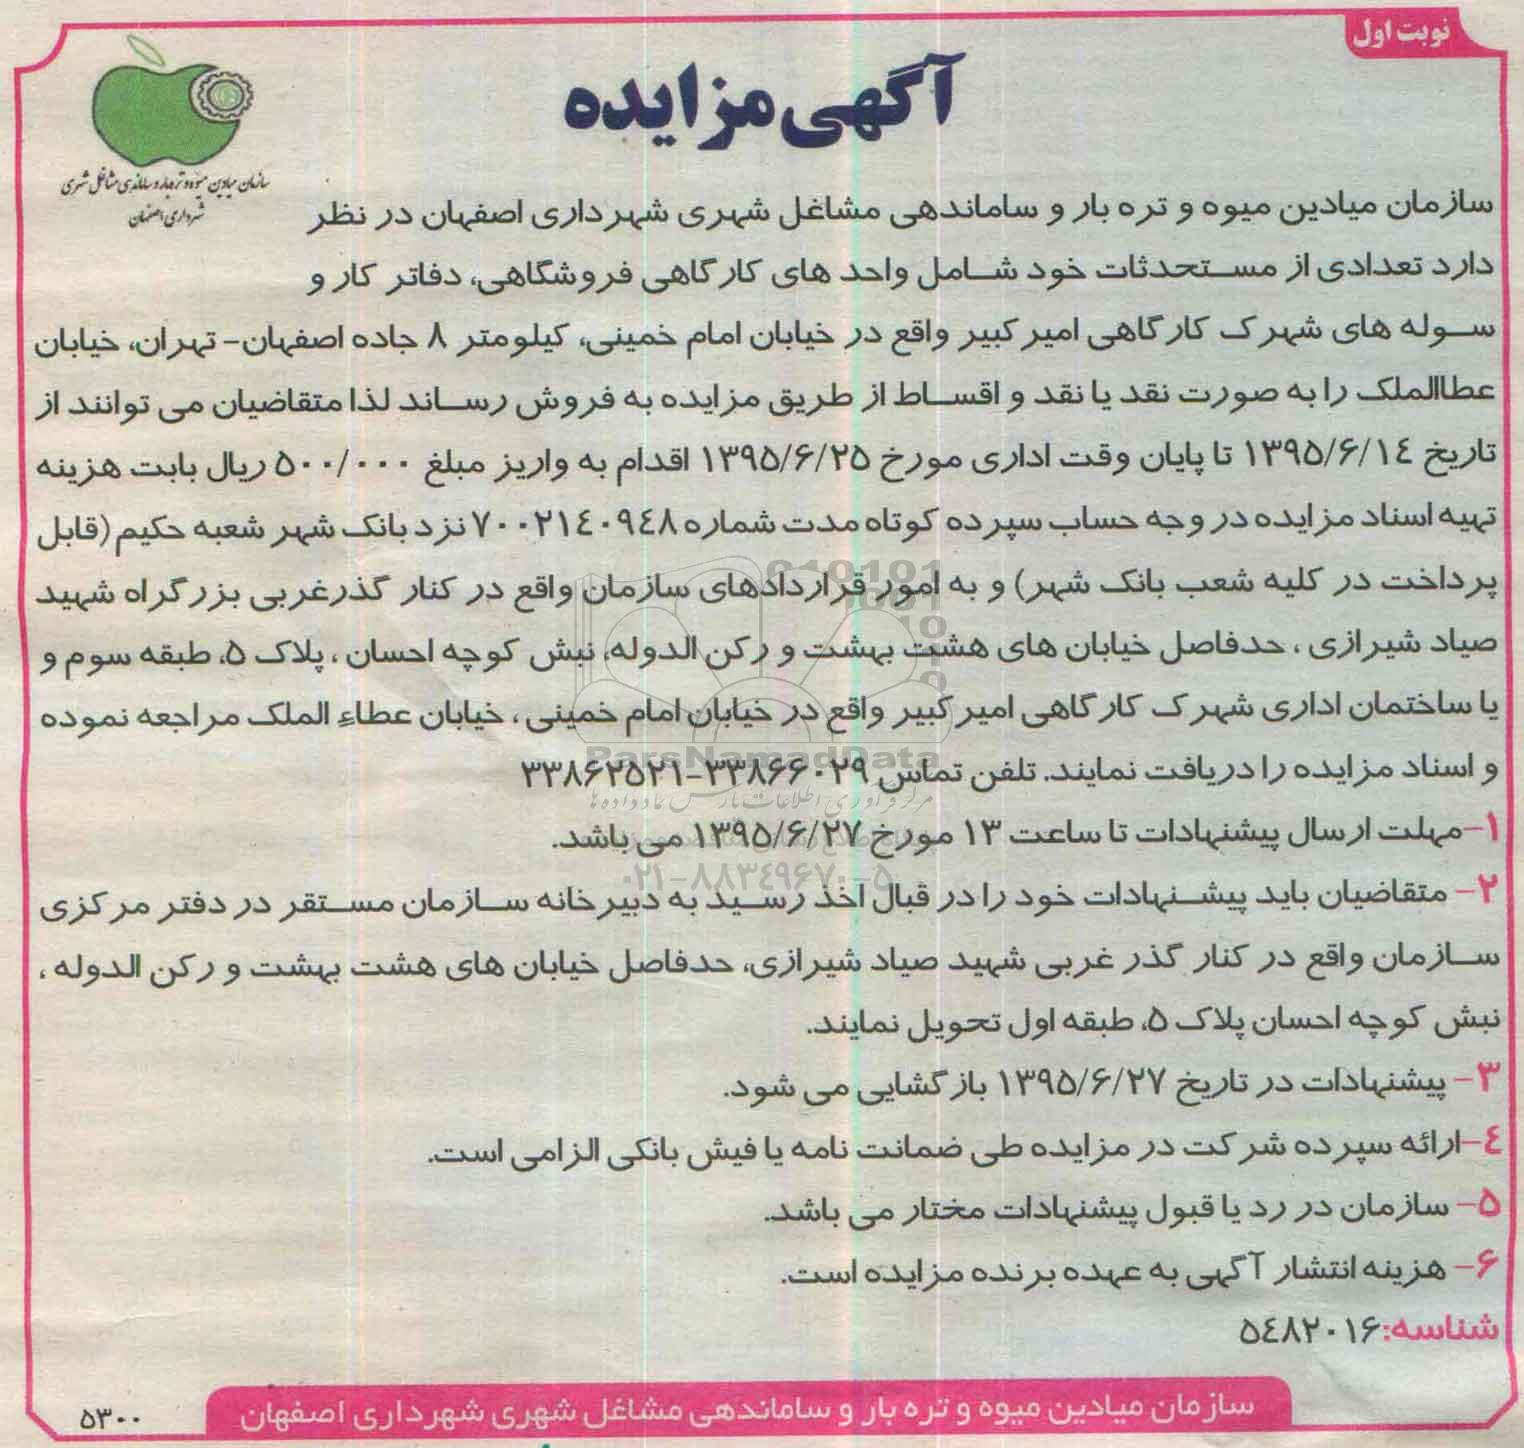 نوبت اول
آگهی مزایده
سازمان میادین میوه و تره بار و ساماندهی مشاغل شهری
شهرداری اصفهان
سازمان میادین میوه و تره بار و ساماندهی مشاغل شهری شهرداری اصفهان در نظر
دارد تعدادی از مستحدثات خود شامل واحد های کارگاهی فروشگاهی، دفاتر کار و
سوله های شهرک کارگاهی امیرکبیر واقع در خیابان امام خمینی، کیلومتر ۸ جاده اصفهان- تهران، خیابان
عطاالملک را به صورت نقد یا نقد و اقساط از طریق مزایده به فروش رساند لذا متقاضیان می توانند از
تاریخ ۱۳۹۵/۶/۱۴ تا پایان وقت اداری مورخ ۱۳۹۵/۶/۲۵ اقدام به واریز مبلغ ۵۰۰/۰۰۰ ریال بابت هزینه
تهیه اسناد مزایده در وجه حساب سپرده کوتاه مدت شماره ۷۰۰۲۱۴۰۹۴۸ نزد بانک شهر شعبه حکیم (قابل
پرداخت در کلیه شعب بانک شهر) و به امور قراردادهای سازمان واقع در کنار گذرغربی بزرگراه شهید
صیاد شیرازی ، حدفاصل خیابان های هشت بهشت و رکن الدوله، نبش کوچه احسان ، پلاک ۵، طبقه سوم و
یا ساختمان اداری شهرک کارگاهی امیرکبیر واقع در خیابان امام خمینی ، خیابان عطاء الملک مراجعه نموده
و اسناد مزایده را دریافت نمایند. تلفن تماس ۳۳۸۶۶۰۲۹-۳۳۸۶۲۵۲۱
۱-مهلت ارسال پیشنهادات تا ساعت ۱۳ مورخ ۱۳۹۵/۶/۲۷ می باشد.
۲- متقاضیان باید پیشنهادات خود را در قبال اخذ رسید به دبیرخانه سازمان مستقر در دفتر مرکزی
سازمان واقع در کنار گذر غربی شهید صیاد شیرازی، حدفاصل خیابان های هشت بهشت و رکن الدوله ،
نبش کوچه احسان پلاک ۵، طبقه اول تحویل نمایند.
۳- پیشنهادات در تاریخ ۱۳۹۵/۶/۲۷ بازگشایی می شود.
۴-ارائه سپرده شرکت در مزایده طی ضمانت نامه یا فیش بانکی الزامی است.
۵- سازمان در رد یا قبول پیشنهادات مختار می باشد.
۶- هزینه انتشار آگهی به عهده برنده مزایده است.
شناسه:۵۴۸۲۰۱۶
سازمان میادین میوه و تره بار و ساماندهی مشاغل شهری شهرداری اصفهان
۵۳۰۰
ParsNamadData
مرکز فرآوری اطلاعات پارس نماد داده ها
۰۲۱-۸۸۳۴۹۶۷۰-۵